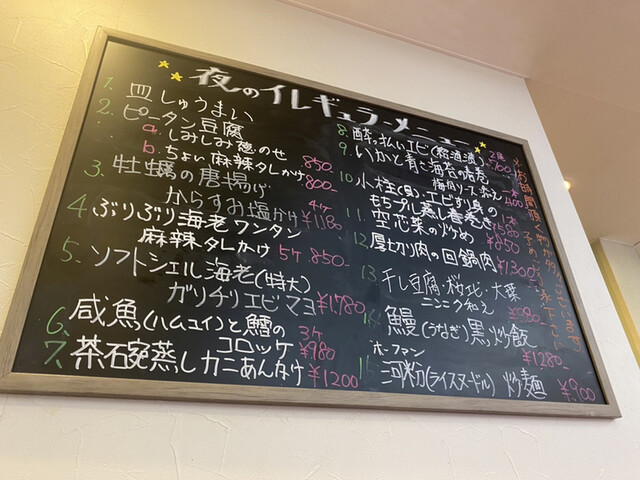 夜のイレギュラーメニュー
1. 皿しゅうまい
2. ピータン豆腐
a. しみしみ葱のせ 850-
b. ちょい麻辣タレかけ 800-
3. 牡蠣の唐揚げ
からすみ塩がけ 4ヶ ¥1180
4. ぷりぷり海老ワンタン
麻辣タレかけ 5ヶ 850-
5. ソフトシェル海老(特大)
ガリチリエビマヨ ¥1,780
6. 咸魚(ハムユイ)と鱈の
コロッケ 3ヶ ¥980
7. 茶碗蒸しカニあんかけ ¥1200
8. 酔っ払いエビ(紹酒漬)
9. いかと青さ海苔の春巻
梅肉ソース添え
10. 小柱(貝)、エビすり身の
もちプル蒸し春巻き
11. 空芯菜の炒め ¥850
12. 厚切り肉の回鍋肉 ¥1300
13. 干し豆腐・桜エビ・大葉
ニンニク和え ¥980
鰻(うなぎ)黒炒飯 ¥1280-
ホーファン
河粉(ライスヌードル) 炒麺 ¥900